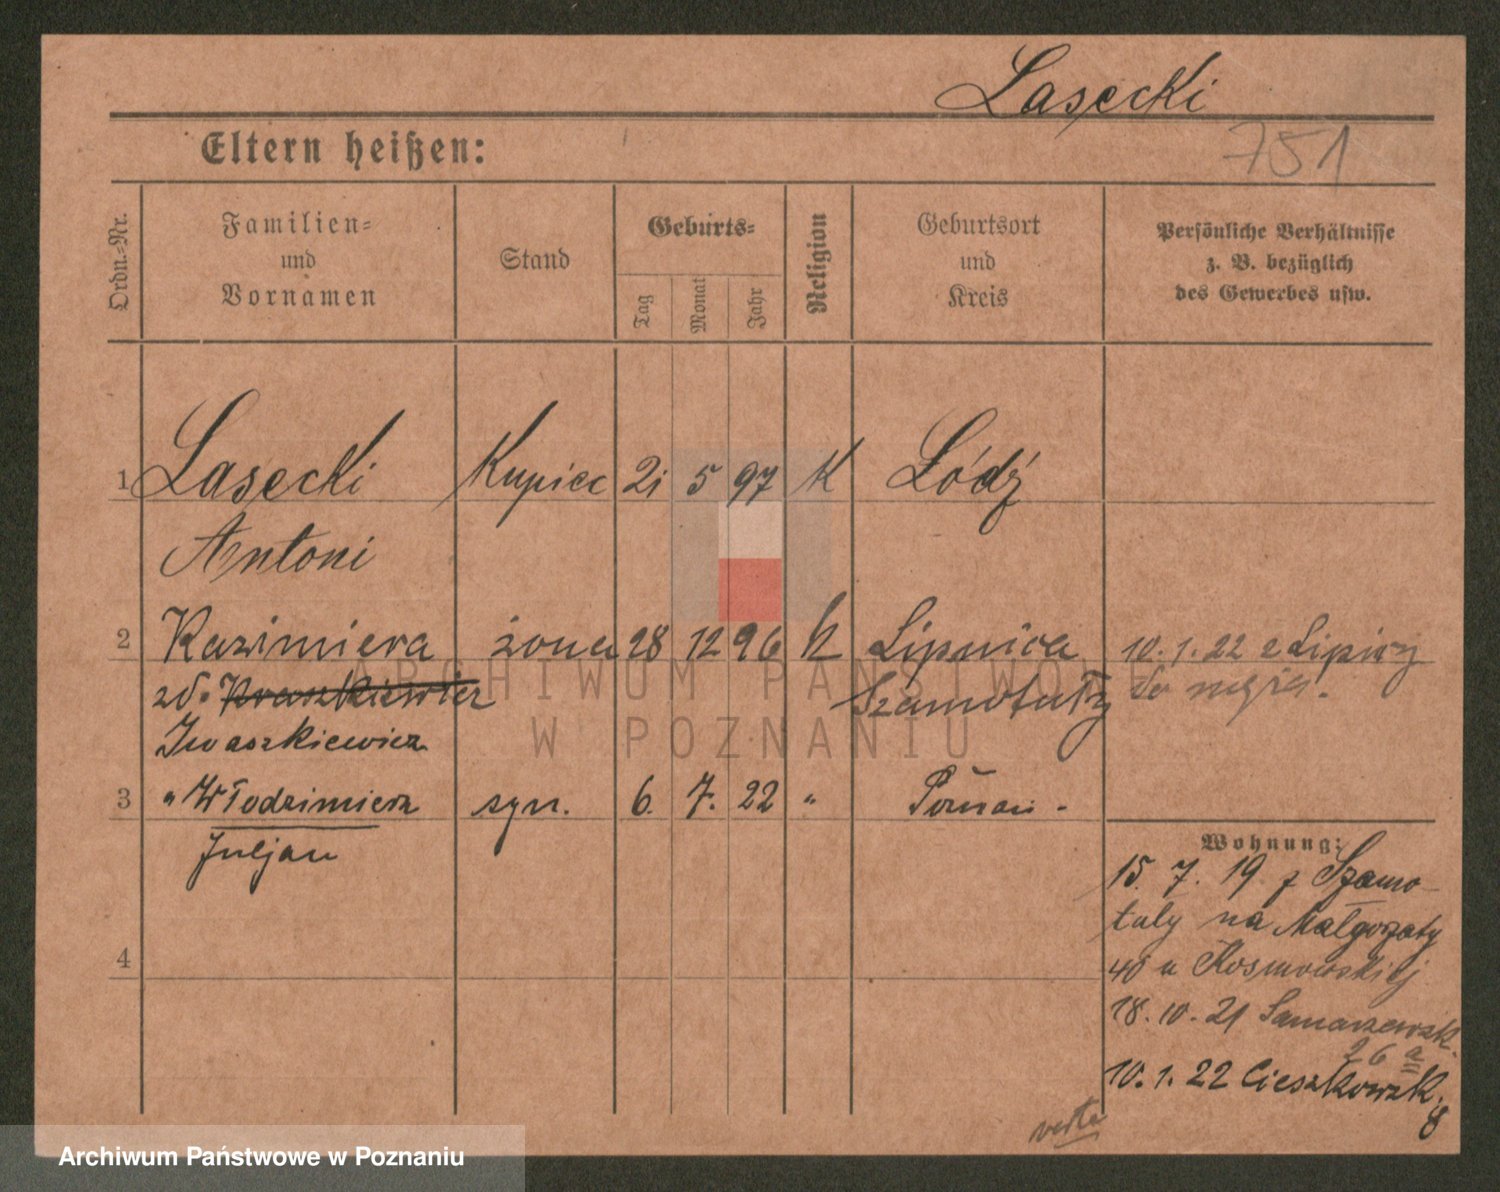 Lasecki
Eltern heißen:
751
Ordn.-Nr.
Familien-
und
Vornamen
Stand
Geburts-
Tag
Monat
Jahr
Religion
Geburtsort
und
Kreis
Persönliche Verhältnisse
z. B. bezüglich
des Gewerbes usw.
1 Lasecki Kupiec 21 5 97 K Łódź
Antoni
2 Kazimiera żona 28 12 96 K Lipnica 10.1.22 z Lipnicy
zd. Kraszkiewicz Szamotuły do męża.
Iwaszkiewicz
3 " Włodzimierz syn. 6. 7. 22 " Poznań -
Juljan
Wohnung:
15. 7. 19 z Szamo-
tuly na Małgorzaty
40 u Kosmowskiej
4
18.10.21 Samarzewsk.
26 a
10.1.22 Cieszkowsk.
8
verte
ARCHIWUM PAŃSTWOWE
W POZNANIU
Archiwum Państwowe w Poznaniu